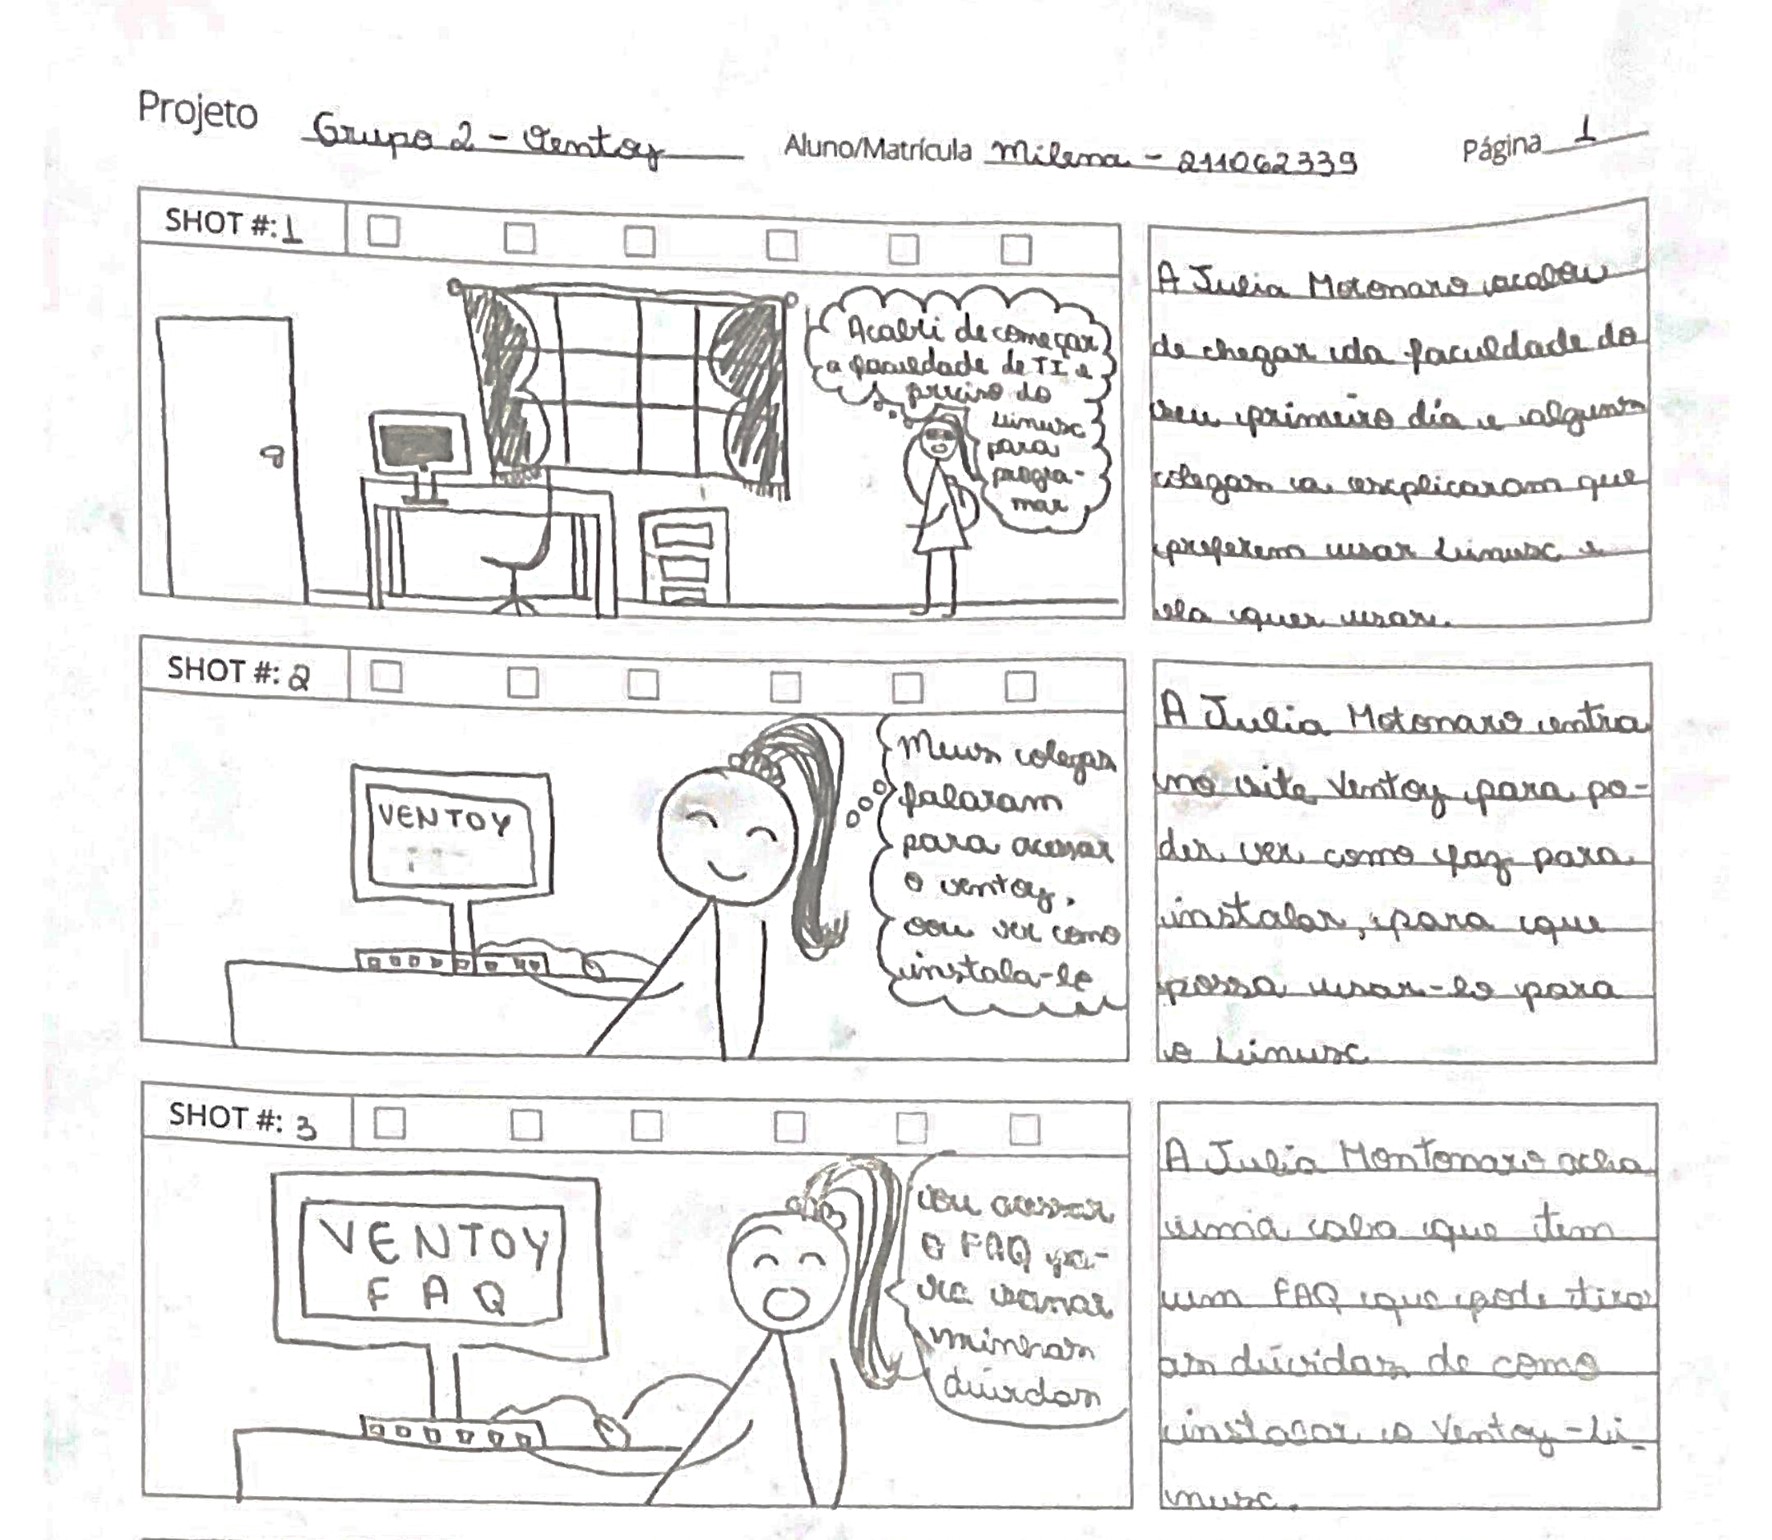 Projeto Grupo 2 - Ventoy Aluno/Matrícula Milena - 211062339 Página 1
SHOT #: 1
Acabei de começar
a faculdade de TI e
preciso do
Linux
para
progra-
mar
A Julia Motonaro acabou
de chegar da faculdade do
seu primeiro dia e alguns
colegas a explicaram que
preferem usar Linux e
ela quer usar.
SHOT #: 2
VENTOY
Meus colegas
falaram
para acessar
o ventoy,
vou ver como
instala-lo
A Julia Motonaro entra
no site Ventoy para po-
der ver como faz para
instalar, para que
possa usar-lo para
o Linux
SHOT #: 3
VENTOY
FAQ
vou acessar
o FAQ pa-
ra sanar
minhas
dúvidas
A Julia Montonaro acha
uma aba que tem
um FAQ que pode tirar
as dúvidas de como
instalar o Ventoy-Li-
nux.